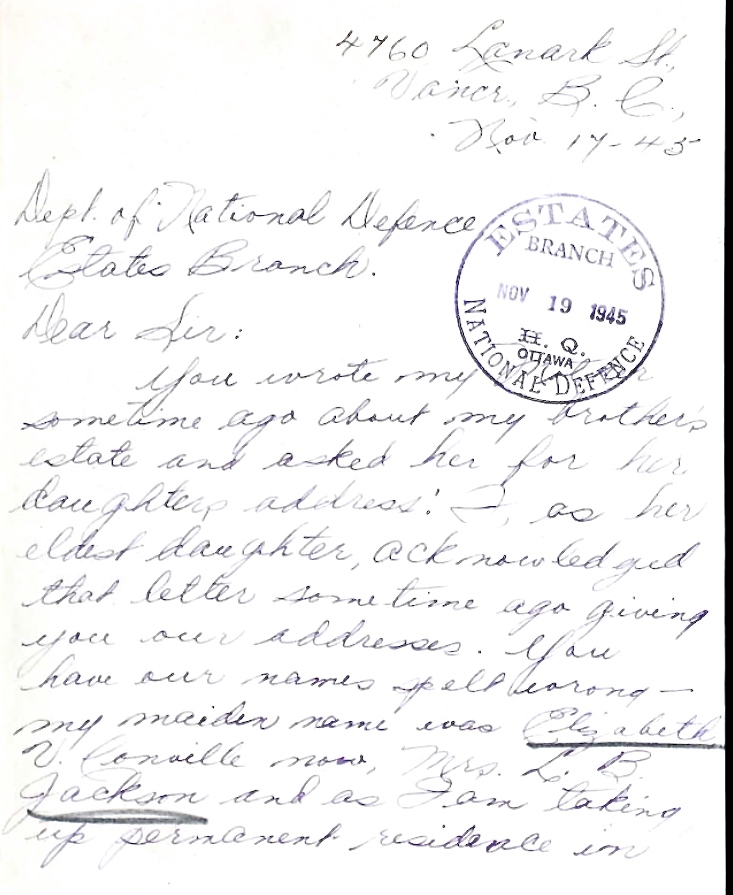 4760 Lanark St.,
Vancr., B. C.,
Nov. 17-45
Dept. of National Defence
Estates Branch.
ESTATES
BRANCH
NOV 19 1945
H. Q.
OTTAWA
NATIONAL DEFENCE
Dear Sir:
You wrote my
sometime ago about my brother's
estate and asked her for her
daughters address. I, as her
eldest daughter, acknowledged
that letter sometime ago giving
you our addresses. You
have our names spelt wrong —
my maiden name was Elizabeth
V. Conville now, Mrs. L. B.
Jackson and as I am taking
up permanent residence in